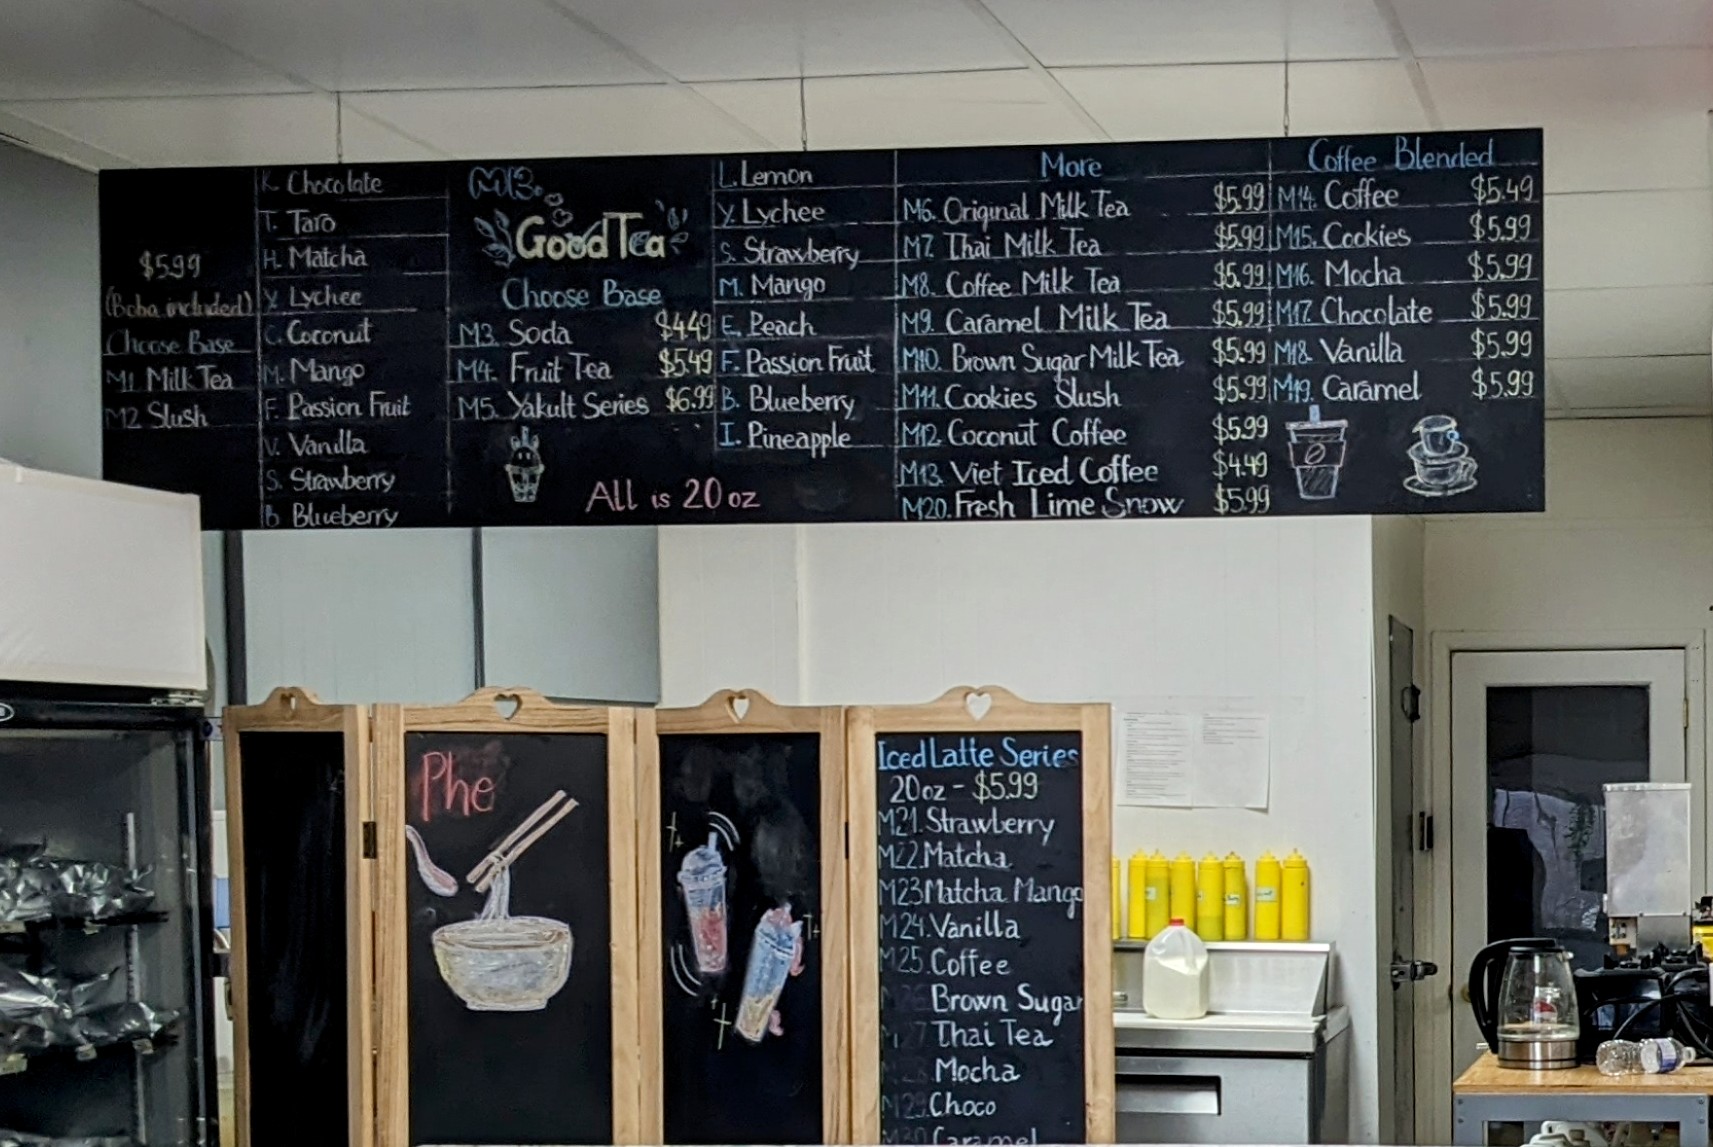 $5.99
(Boba included)
Choose Base
M1 Milk Tea
M2 Slush
K. Chocolate
T. Taro
H. Matcha
Y. Lychee
C. Coconut
M. Mango
F. Passion Fruit
V. Vanilla
S. Strawberry
B. Blueberry
Good Tea
Choose Base
M3. Soda $4.49
M4. Fruit Tea $5.49
M5. Yakult Series $6.99
All is 20 oz
L. Lemon
Y. Lychee
S. Strawberry
M. Mango
E. Peach
F. Passion Fruit
B. Blueberry
I. Pineapple
More
M6. Original Milk Tea $5.99
M7. Thai Milk Tea $5.99
M8. Coffee Milk Tea $5.99
M9. Caramel Milk Tea $5.99
M10. Brown Sugar Milk Tea $5.99
M11. Cookies Slush $5.99
M12. Coconut Coffee $5.99
M13. Viet Iced Coffee $4.49
M20. Fresh Lime Snow $5.99
Coffee Blended
M14. Coffee $5.49
M15. Cookies $5.99
M16. Mocha $5.99
M17. Chocolate $5.99
M18. Vanilla $5.99
M19. Caramel $5.99
Phe
Iced Latte Series
20oz - $5.99
M21. Strawberry
M22. Matcha
M23 Matcha Mango
M24. Vanilla
M25. Coffee
Brown Sugar
Thai Tea
Mocha
M29. Choco
M30 Caramel